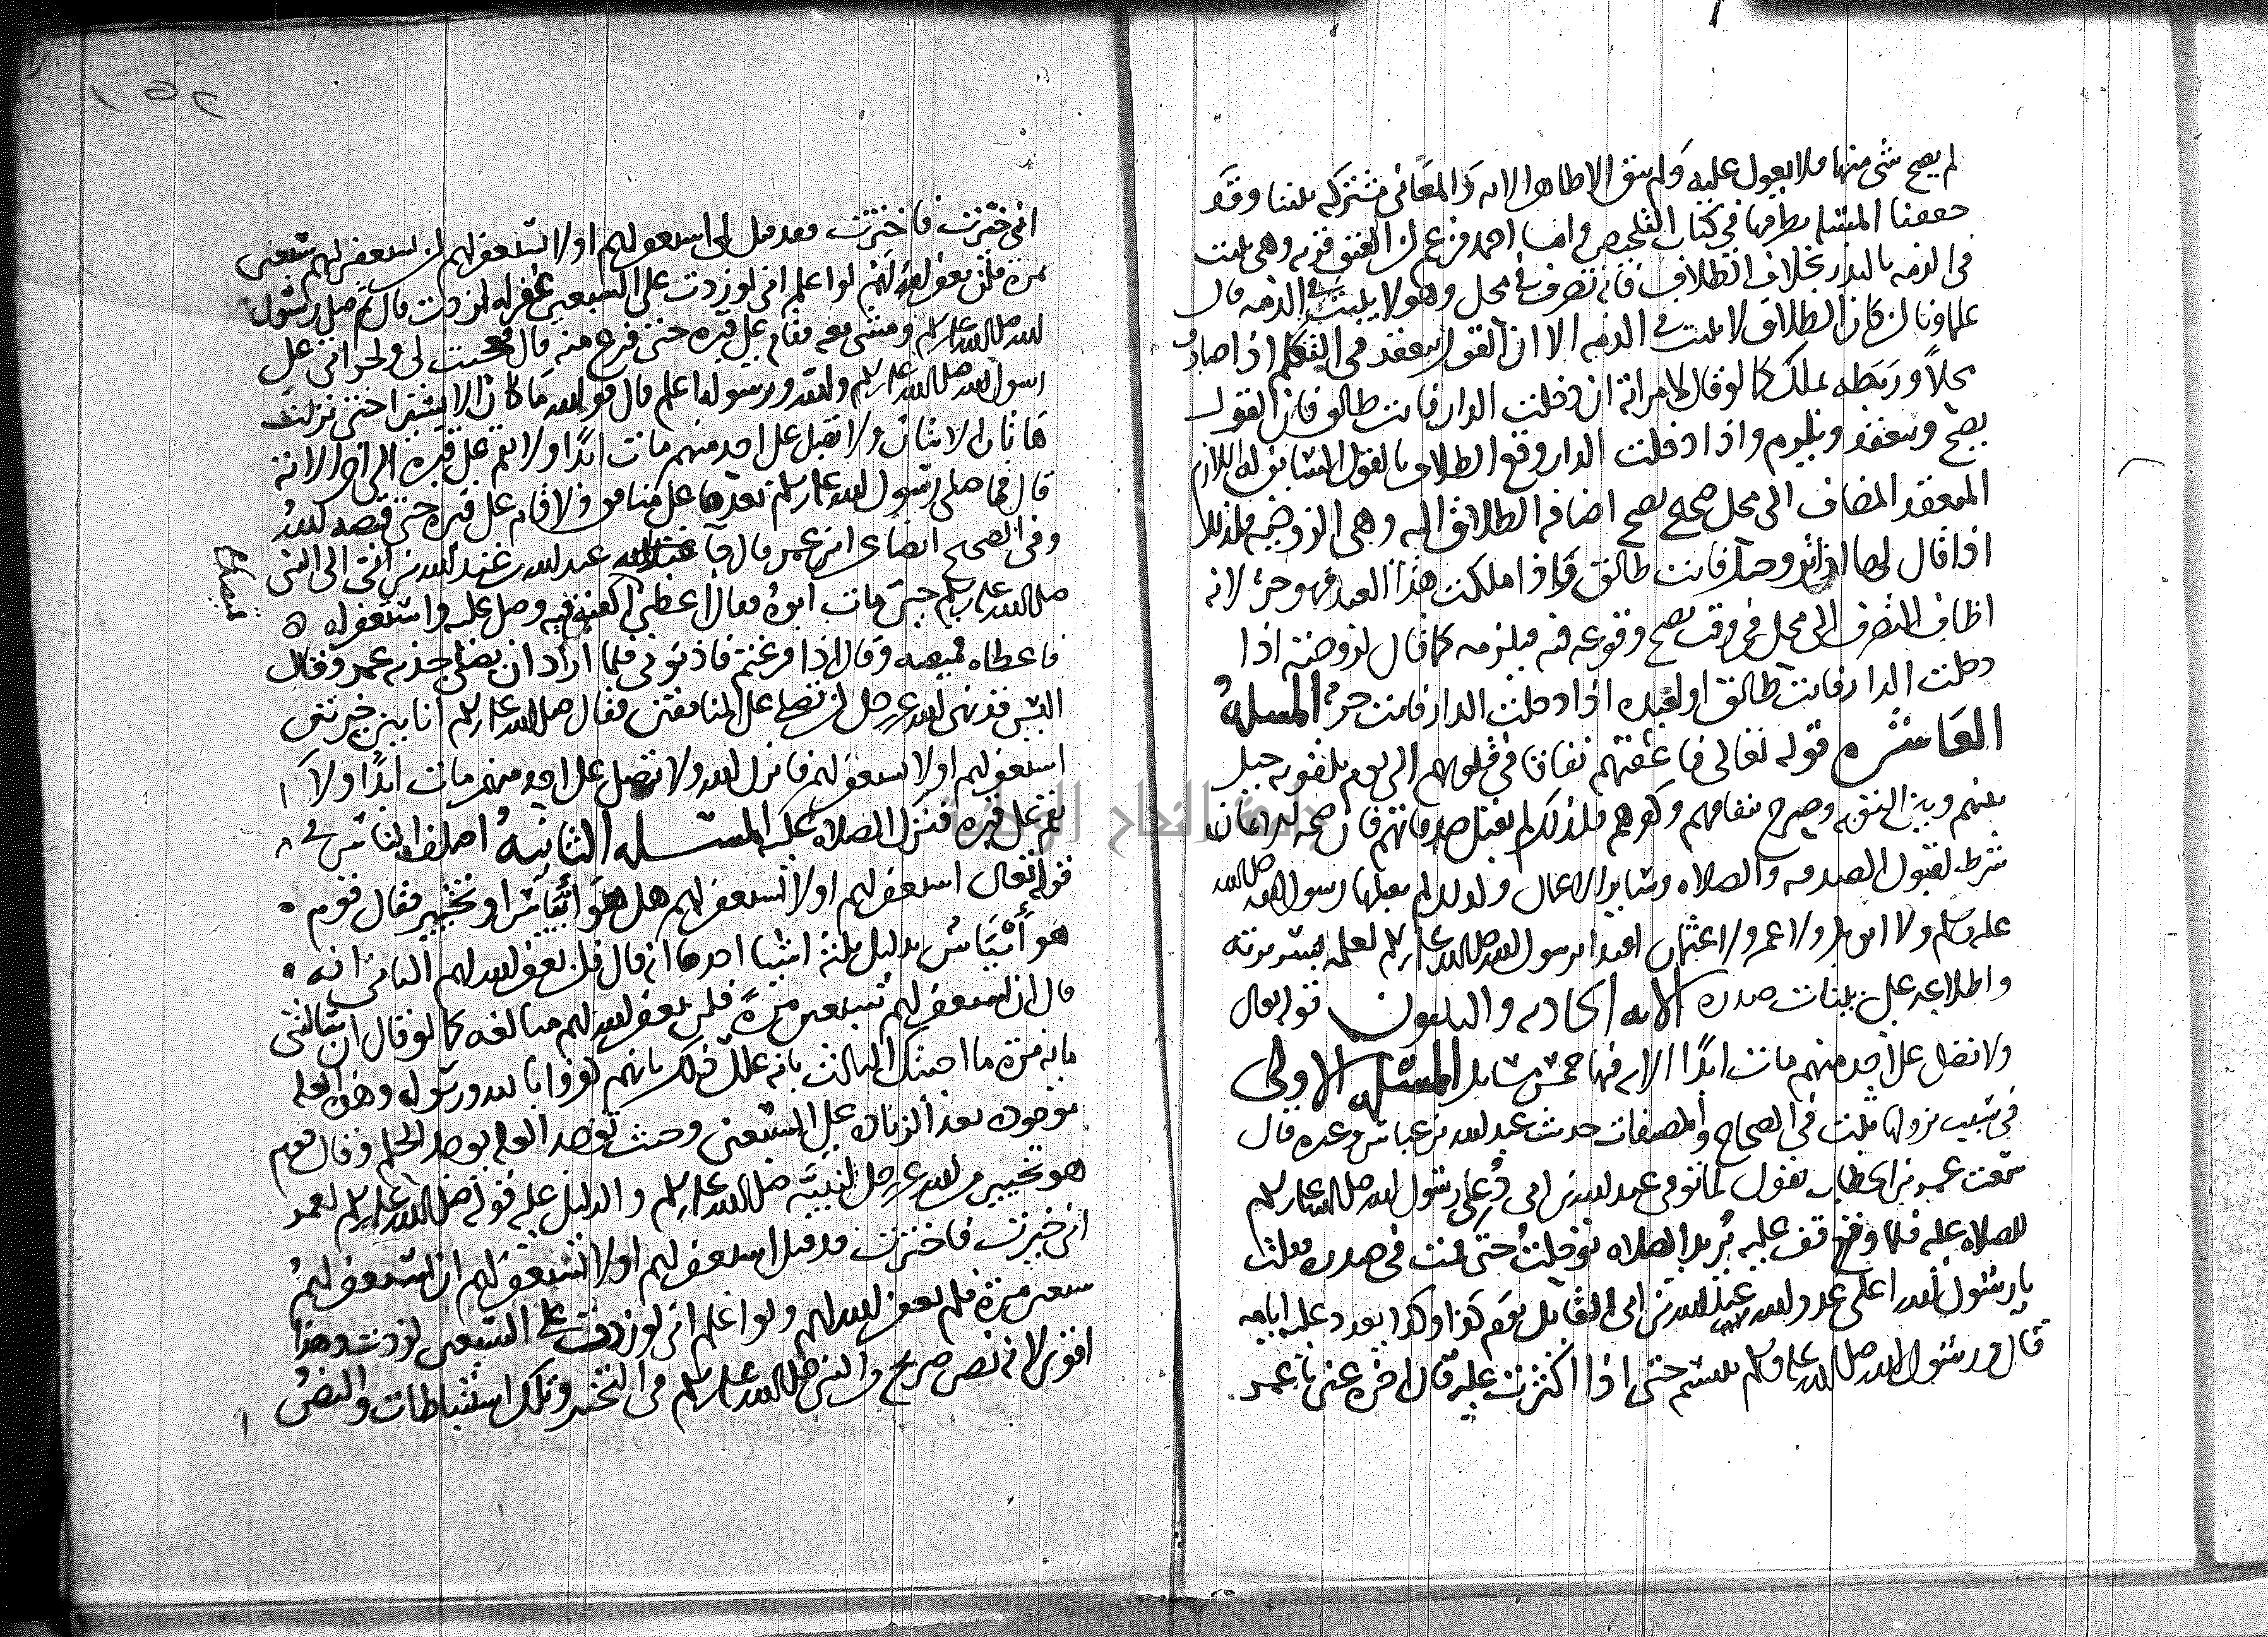 لم يصح شي منها فلا يعول عليه ولم يبق الا ظاهر الايه والمعاني مشتركه بيننا وقد
حققنا المسله بطرقها في كتاب التلخيص واما احمد فزعم ان العتق قربه وهي تثبت
في الذمه بالنذر بخلاف الطلاق فانه تصرف في محل وهو لا يثبت في الذمه قال
علماونا ان كان الطلاق لا يثبت في الذمه الا ان القول ينعقد من المتكلم اذا صادف
محلا وربطه بملك كما لو قال لامراته ان دخلت الدار فانت طالق فان القول
يصح وينعقد ويلزم واذا دخلت الدار وقع الطلاق بالقول السابق له اللازم
المنعقد المضاف الى محل صحيح تصح اضافه الطلاق اليه وهي الزوجيه فلذلك
اذا قال لها اذا تزوجتك فانت طالق واذا ملكت هذا العبد فهو حر لانه
اضاف التصرف الى محل في وقت يصح وقوعه فيه فيلزمه كما قال لزوجته اذا
دخلت الدار فانت طالق او لعبده اذا دخلت الدار فانت حر المسله
العاشره قوله تعالى فاعقبهم نفاقا في قلوبهم الى يوم يلقونه حيل
بينهم وبين التوبه وصرح بنفاقهم وكفرهم فلذلك لم تقبل صدقاتهم فان صحه الايمان
شرط لقبول الصدقه والصلاه وساير الاعمال ولذلك لم يقبلها رسول الله صلى الله
عليه وسلم ولا ابو بكر ولا عمر ولا عثمان اقتدا برسول الله صلى الله عليه وسلم لعلمه بسريرته
واطلاعه على بنات صدره الايه الحاديه والثلاثون قوله تعالى
ولا تصل على احد منهم مات ابدا الايه فيها خمس مسايل المسله الاولى
في سبب نزولها ثبت في الصحاح والمصنفات حديث عبد الله بن عباس وغيره قال
سمعت عمر بن الخطاب يقول لما توفي عبد الله بن ابي دعي رسول الله صلى الله عليه وسلم
للصلاه عليه فلما وقف عليه يريد الصلاه تحولت حتى قمت في صدره فقلت
يا رسول الله اعلى عدو الله عبد الله بن ابي القايل يوم كذا وكذا يعدد عليه ايامه
قال ورسول الله صلى الله عليه وسلم يبتسم حتى اذا اكثرت عليه قال اخر عني يا عمر
اني خيرت فاخترت وقد قيل لي استغفر لهم او لا تستغفر لهم ان تستغفر لهم سبعين
مره فلن يغفر الله لهم لو اعلم اني لو زدت على السبعين غفر له لزدت قال ثم صلى رسول
الله صلى الله عليه وسلم ومشى معه فقام على قبره حتى فرغ منه قال فعجبت لي ولجراتي على
رسول الله صلى الله عليه وسلم والله ورسوله اعلم قال فوالله ما كان الا يسيرا حتى نزلت
هاتان الايتان ولا تصل على احد منهم مات ابدا ولا تقم على قبره الى اخر الايه
قال فما صلى رسول الله عليه وسلم بعدها على منافق ولا قام على قبره حتى قبضه الله
وفي الصحيح ايضا عن ابن عمر قال جا عبد الله بن عبد الله بن ابي الى النبي
صلى الله عليه وسلم حين مات ابوه فقال اعطني اكفنه فيه وصل عليه واستغفر له
قميصك
فاعطاه قميصه وقال اذا فرغتم فاذنوني فلما اراد ان يصلي جذبه عمر وقال
اليس قد نهى الله عز وجل ان تصلي على المنافقين فقال صلى الله عليه وسلم انا بين خيرتين
استغفر لهم او لا تستغفر لهم فانزل الله ولا تصل على احد منهم مات ابدا ولا
تقم على قبره فترك الصلاه عليهم المسله الثانيه اختلف الناس في
قوله تعالى استغفر لهم او لا تستغفر لهم هل هو اياس او تخيير فقال قوم
هو اياس بدليل ثلثه اشيا احدها انه قال فلن يغفر الله لهم الثاني انه
قال ان تستغفر لهم سبعين مره فلن يغفر الله لهم مبالغه كما لو قال ان سالتني
مايه مره ما اجبتك الثالث بانه علل ذلك بانهم كفروا بالله ورسوله وهذه العله
موجوده بعد الزياده على السبعين وحيث توجد العله يوجد الحكم وقال قوم
هو تخيير من الله عز وجل لنبيه صلى الله عليه وسلم والدليل عليه قوله صلى الله عليه وسلم لعمر
اني خيرت فاخترت قد قيل استغفر لهم او لا تستغفر لهم ان تستغفر لهم
سبعين مره فلم يغفر الله لهم ولو اعلم اني لو زدت على السبعين لزدت وهذا
اقوى لانه نص صريح من النبي صلى الله عليه وسلم في التخيير وتلك استنباطات والنص
جامعة النجاح الوطنية